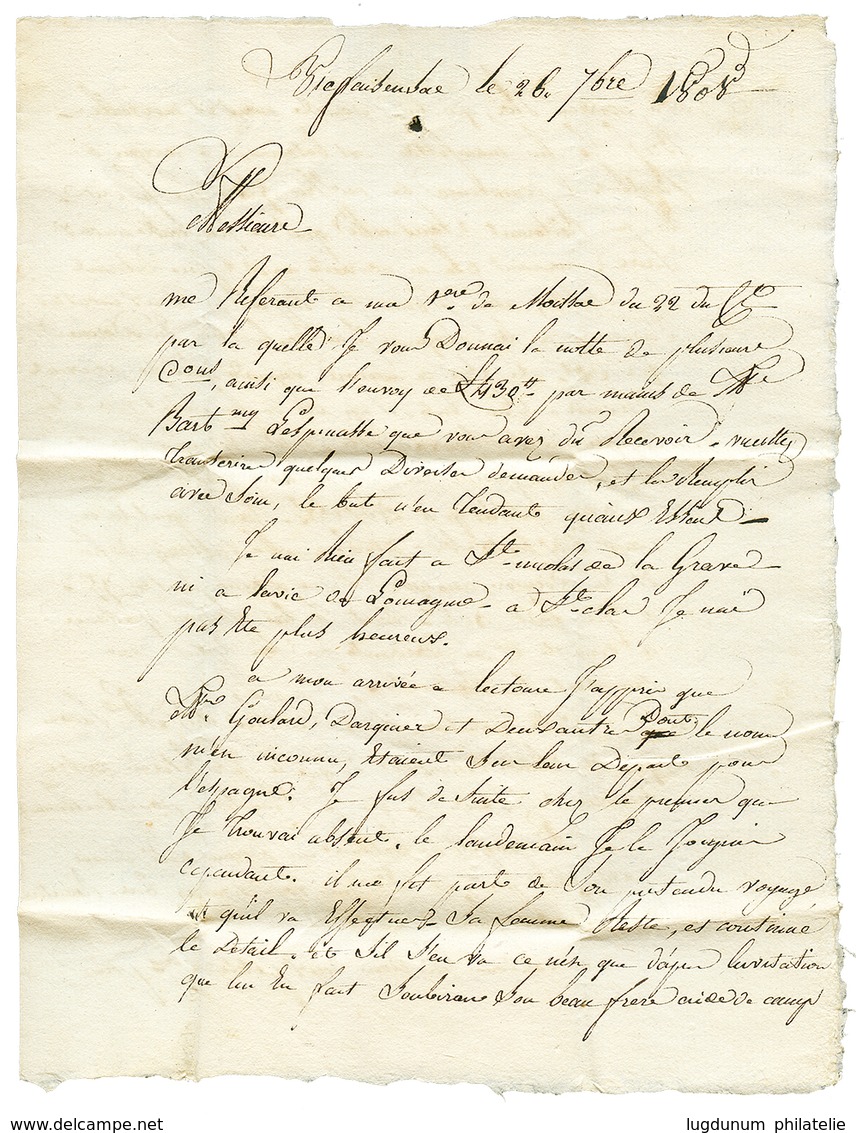 Vicfaisensac le 26 7bre 1808
Messieurs
me Referant a ma 1ere de Moissac du 22 du Ct
par la quelle Je vous Donnai la notte de plusieurs
Cons, ainsi que l'envoy de £430tt par mains de Mr
Barthmy Lespinasse que vous avez du Recevoir, veuillez
transcrire quelques Diverses demandes, et les Remplir
avec Soin, le but n'en tendant qu'aux Essent
Je nai Rien fait a St nicolas de la Grave
ni a lavic de Lomagne a St clar Je nai
pas Ete plus heureux.
a mon arrivée a lectoure J'appris que
Mrs Goulard, Darginer et Deux autres Dont le nom
m'en inconnu, Etaient Sur leur Depart pour
l'espagne. Je fus de Suite chez le premier que
Je trouvai absent, le landemain Je le Joignis
cependant. il me fit part de Son pretendu voyage
et qu'il va Effectuer Sa femme Reste, et continue
le Detail, et Sil S'en va ce n'est que d'apres linvitation
que lui En fait Soubiran Son beau frere aide de camp
lugdunum philatelie